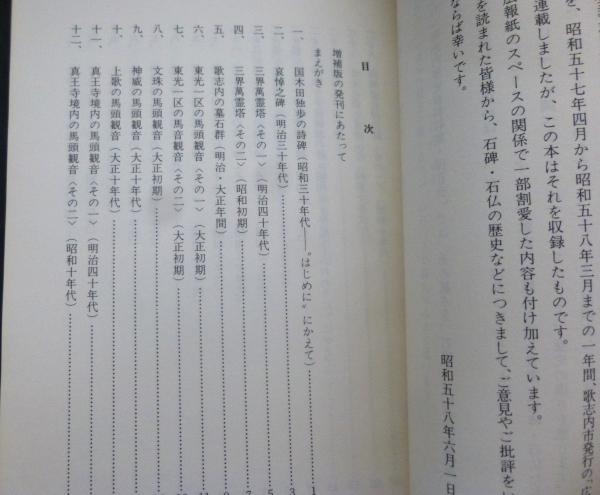 を、昭和五十七年四月から昭和五十八年三月までの一年間、歌志内市発行の「広
連載しましたが、この本はそれを収録したものです。
広報紙のスペースの関係で一部割愛した内容も付け加えています。
を読まれた皆様から、石碑・石仏の歴史などにつきまして、ご意見やご批評を
ならば幸いです。
昭和五十八年六月一日
目次
増補版の発刊にあたって
まえがき
一、国木田独歩の詩碑(昭和三十年代――〝はじめに〟にかえて)…………1
二、哀悼之碑(明治三十年代)…………3
三、三界萬霊塔〈その一〉(明治四十年代)…………5
四、三界萬霊塔〈その二〉(昭和初期)…………7
五、歌志内の墓石群(明治・大正年間)…………
六、東光一区の馬頭観音〈その一〉(大正初期)…………
七、東光一区の馬音観音〈その二〉(大正初期)…………
八、文珠の馬頭観音(大正初期)…………
九、神威の馬頭観音(大正十年代)…………
十、上歌の馬頭観音(大正十年代)…………
十一、真王寺境内の馬頭観音〈その一〉(明治四十年代)…………
十二、真王寺境内の馬頭観音〈その二〉(昭和十年代)…………